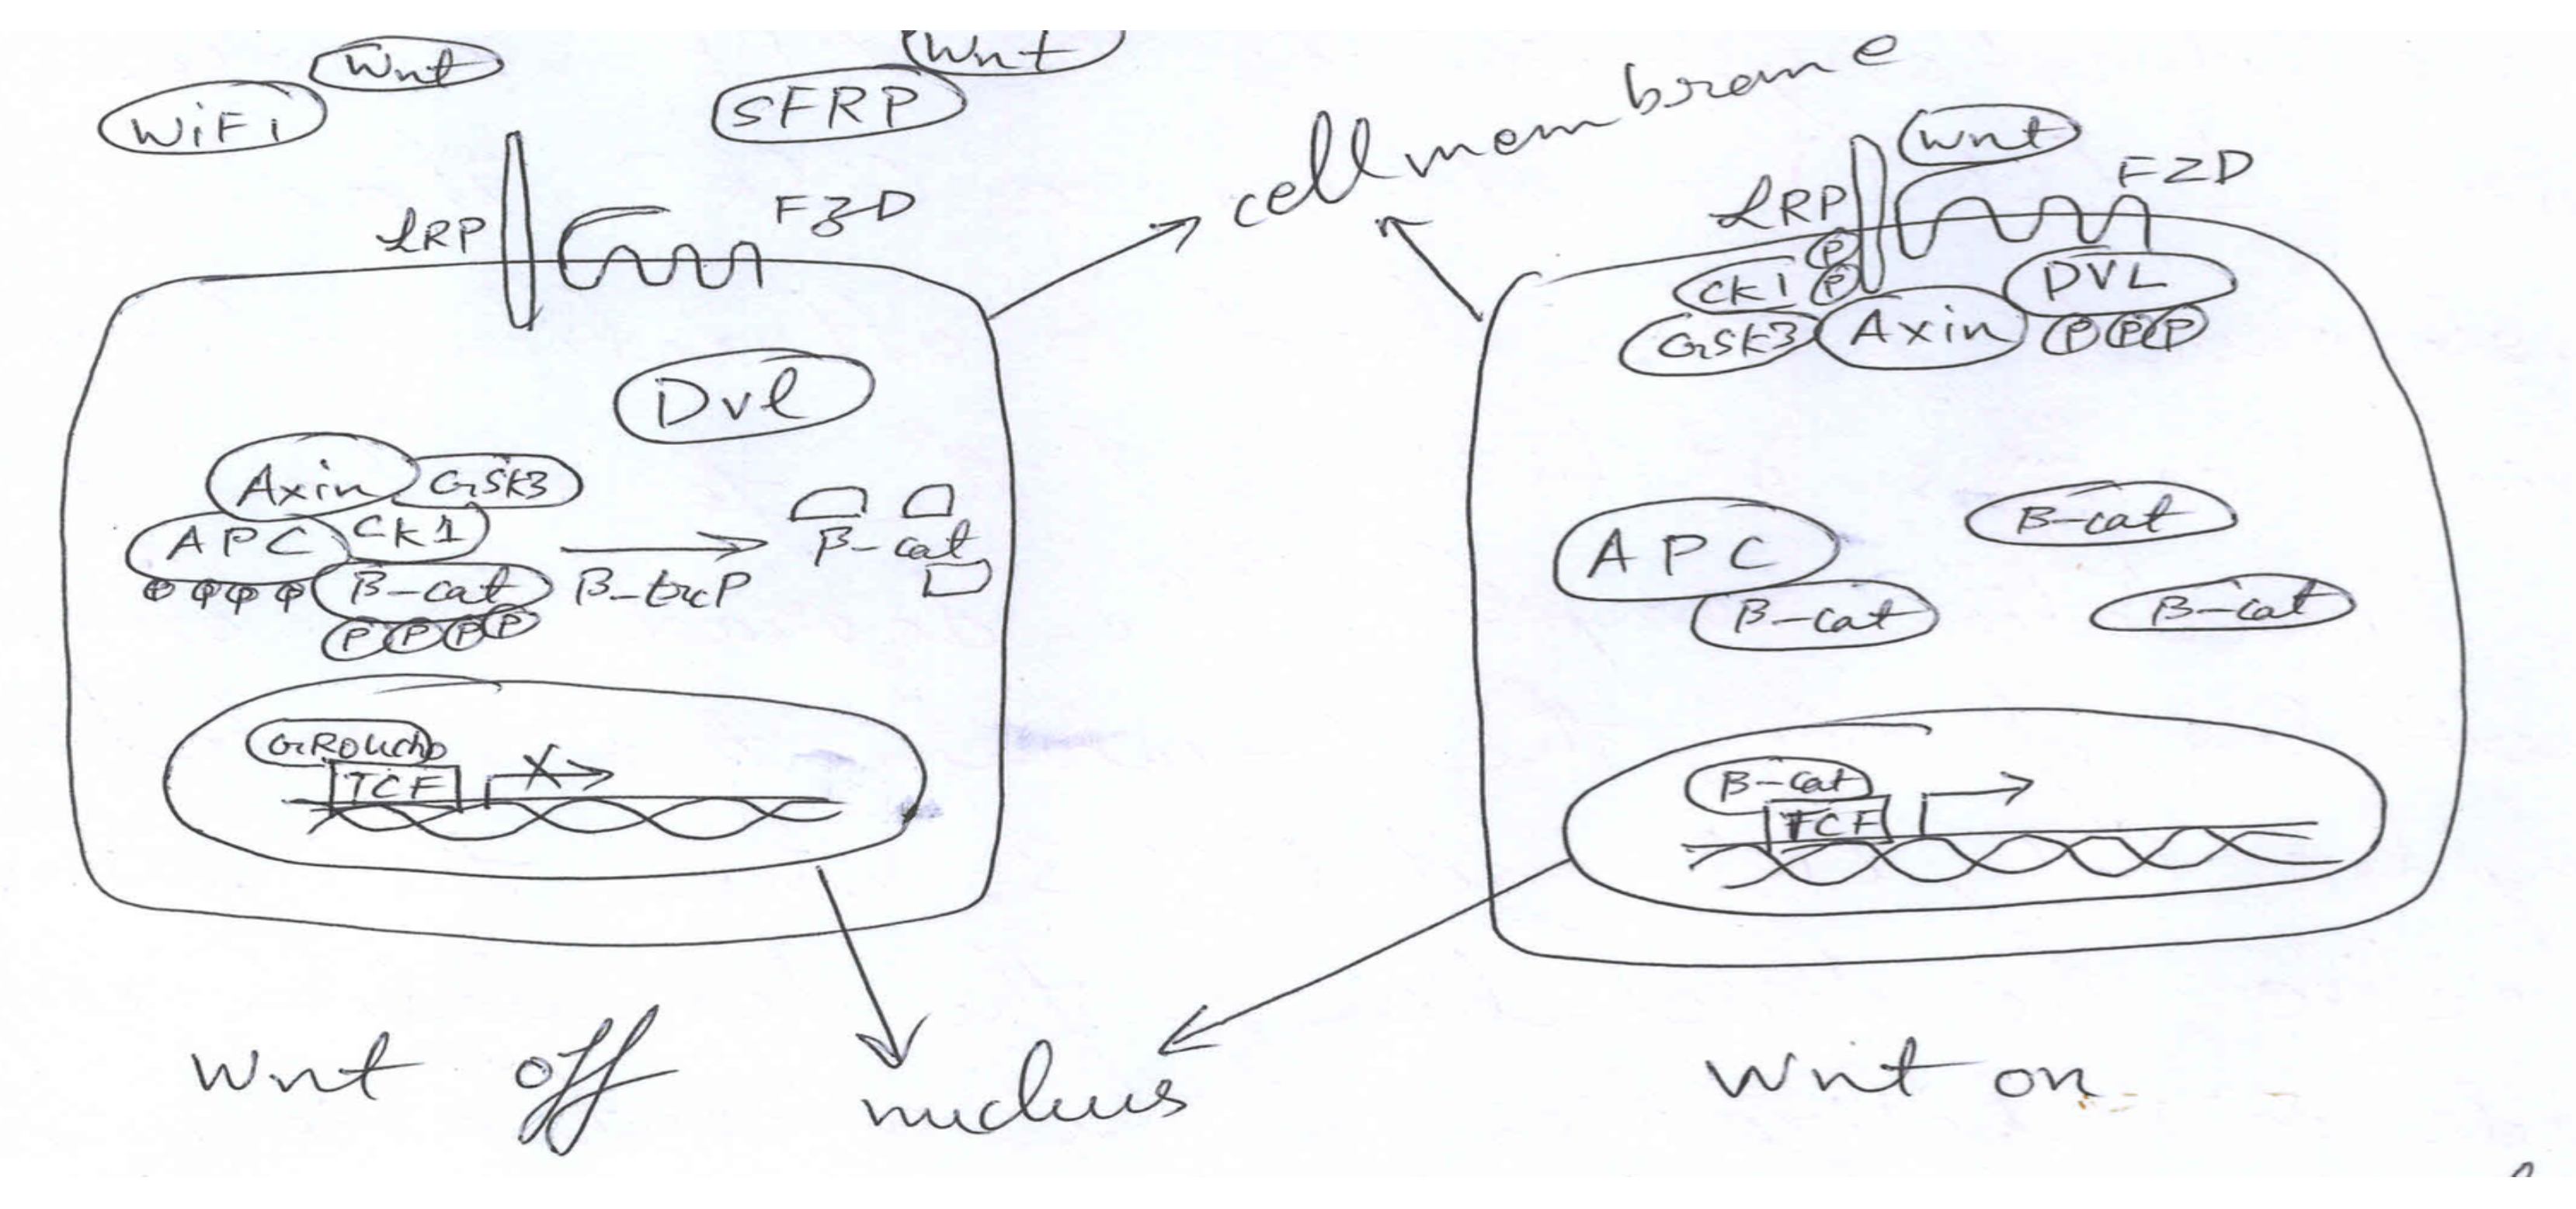 Wnt
WiFi
Wnt
SFRP
LRP
FZD
Dvl
Axin
GSK3
APC
CK1
B-cat
P P P P
P P P P
B-trcP
B-cat
GRoucho
TCF
X
Wnt off
cell membrane
nucleus
Wnt
LRP
FZD
P
P
CK1
DVL
GSK3
Axin
P P P
APC
B-cat
B-cat
B-cat
B-cat
TCF
Wnt on